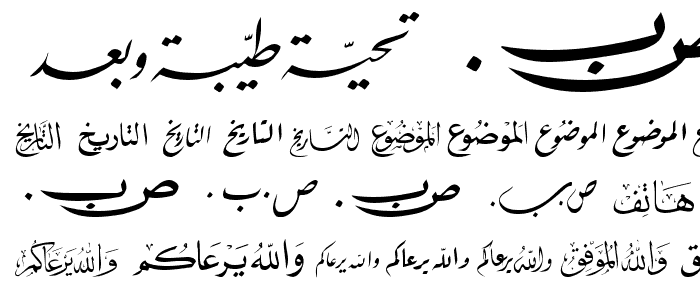 ص.ب. تحيّة طيّبة وبعد
الموضوع الموضوع الموضوع الموضوع الموضوع التاريخ التاريخ التاريخ التاريخ التاريخ التاريخ
هاتف ص.ب. ص.ب. ص.ب. ص.ب.
والله الموفق والله يرعاكم والله يرعاكم والله يرعاكم والله يرعاكم والله يرعاكم